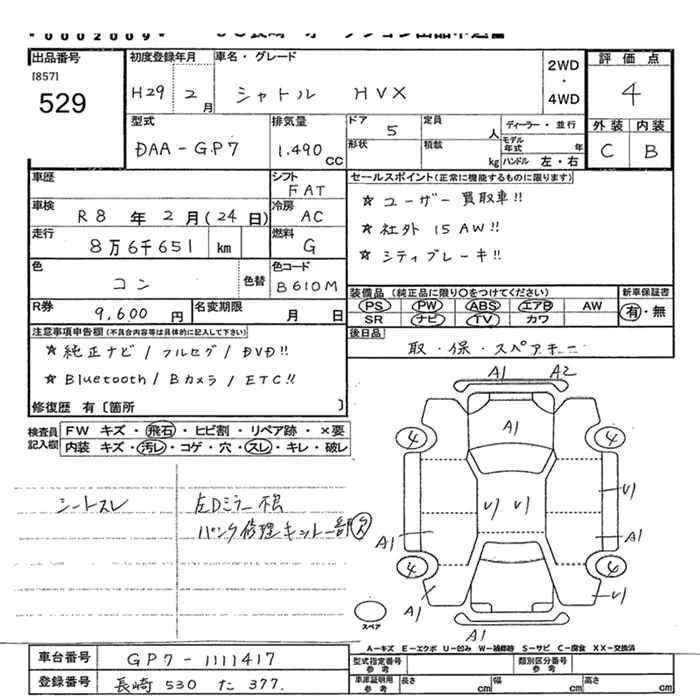 00002009
出品番号
[857]
529
初度登録年月 車名・グレード
H29 2月 シャトル HVX
2WD
・
4WD
評価点
4
外装 内装
C B
型式 排気量 ドア 定員 ディーラー・並行
DAA-GP7 1.490 CC 5 人 モデル年式 年
形状 積載 kg ハンドル 左・右
車歴 シフト FAT
車検 R8年2月(24日) 冷房 AC
走行 8万6千651 km 燃料 G
色 コン 色替 色コード B610M
R券 9,600円 名変期限 月 日
セールスポイント(正常に機能するものに限ります)
☆ ユーザー買取車!!
☆ 社外 15AW!!
☆ シティブレーキ!!
装備品(純正品に限り○をつけてください) 新車保証書
PS PW ABS エアB AW 有・無
SR ナビ TV カワ
後日品
取・保・スペアキー
注意事項申告欄(不具合内容等は具体的に記入して下さい)
☆純正ナビ/フルセグ/DVD!!
☆Bluetooth/Bカメラ/ETC!!
修復歴 有〔箇所 〕
検査員記入欄
FW キズ・飛石・ヒビ割・リペア跡・×要
内装 キズ・汚レ・コゲ・穴・スレ・キレ・破レ
シートスレ 左Dミラー不良
パンク修理キット一部欠
A1 A2
A1
4 4
U1 U1 U1
A1 A1
4 4
A1 U1
A1
スペア
A-キズ E-エクボ U-凹み W-補修跡 S-サビ C-腐食 XX-交換済
車台番号 GP7-1111417
登録番号 長崎 530 た 377.
型式指定番号 参考 類別区分番号 参考
車庫証明用 参考 長さ cm 幅 cm 高さ cm